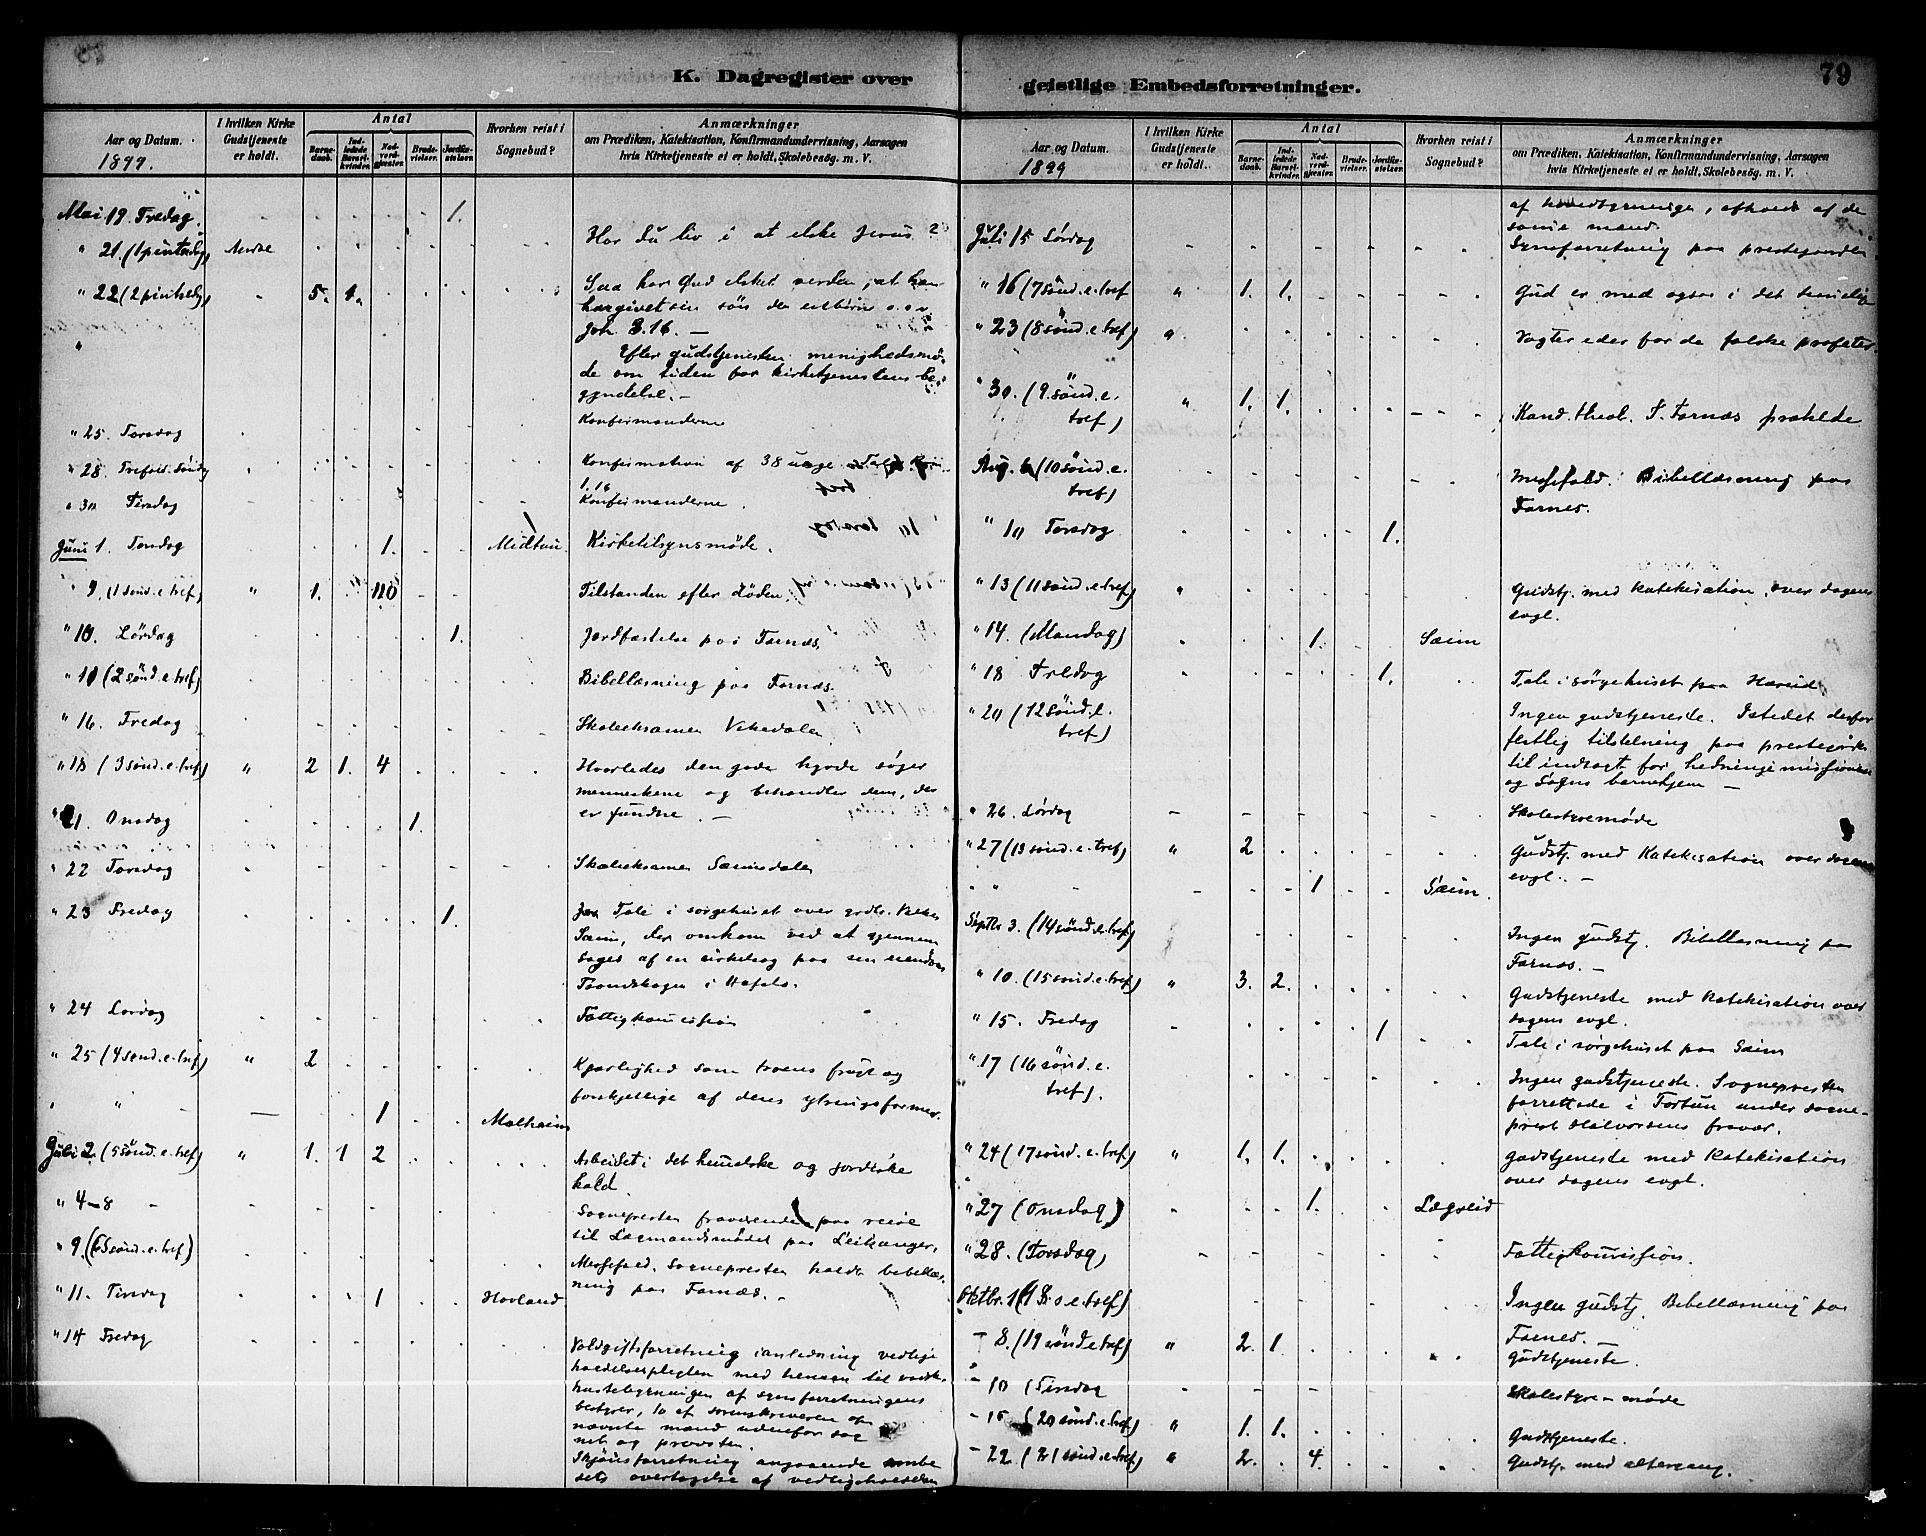 K. Dagregister over
geistlige Embedsforretninger.
79
Aar og Datum.
1899.
I hvilken Kirke Gudstjeneste er holdt.
Antal
Barnedaab.
Indledede Barselkvinder.
Nadverdgjester.
Brudevielser.
Jordfæstelser.
Hvorhen reist i Sognebud?
Anmærkninger
om Prædiken, Katekisation, Konfirmandundervisning, Aarsagen
hvis Kirketjeneste ei er holdt, Skolebesög. m. V.
Mai 19. Fredag. 1.
" 21. (1 pintsedag) Har du liv i at elske Jesus?
" 22 (2 pintsedg) 5. 4. Saa har Gud elsket verden, at han
har givet sin søn den enbårne o.s.v.
Joh. 3.16. —
Efter gudstjenesten menighedsmø-
de om tiden for kirketjenestens be-
gyndelse. —
" 25. Torsdag Konfirmanderne
" 28. Trefold. Söndg Konfirmation af 38 unge.
1.16
" 30 Tirsdag Konfirmanderne.
Juni 1. Torsdag 1. Midtun Kirketilsynsmøde.
" 9. (1 sönd. e. tref) " 1. 110 Tilstanden efter døden.
" 10. Lördag 1. Jordfæstelse paa Farnæs.
" 11 (2 sönd. e. tref) Bibellæsning paa Farnæs.
" 16. Fredag Skoleeksamen Vikedalen
" 18 (3 sönd. e. tref) " 2 1. 4 Hvorledes den gode hyrde søger
menneskene og behandler dem, der
er fundne. —
" 21. Onsdag 1.
" 22 Torsdag Skoleeksamen Sæimsdalen
" 23 Fredag 1. Tale i sørgehuset over
Sæim, der omkom ved at gjennem
sages af en cirkelsag paa sin eiendom
i Hafslo.
" 24 Lördag Fattigkommission
" 25 (4 sönd. e. tref) " 2 Kjærlighed som troens frugt og
forskjellige af deres ytringsformer.
" " 1 Molheim
Juli 2. (5 sönd. e. tref) " 1. 1 2 Arbeidet i det himelske og jordiske
kald.
" 4–8 Sognepresten fraværende paa reise
til Lagmandsmødet paa Leikanger.
" 9. (6 sönd. e. tref) Messefald. Sognepresten holdt bibellæs-
ning paa Farnæs. —
" 11. Tirsdag 1 Hovland
" 14 Fredag Voldgiftsforretning i anledning vedlige
holdelsespligten med hensyn til
af synsforretningens
bestyrer, to af sorenskriveren op
nævnte mænd udenfor sog
net og provsten.
Skjönsforretning angaaende embe
dets overtagelse af vedligeholdelsen
Aar og Datum.
1899
I hvilken Kirke Gudstjeneste er holdt.
Antal
Barnedaab.
Indledede Barselkvinder.
Nadverdgjester.
Brudevielser.
Jordfæstelser.
Hvorhen reist i Sognebud?
Anmærkninger
om Prædiken, Katekisation, Konfirmandundervisning, Aarsagen
hvis Kirketjeneste ei er holdt, Skolebesög. m. V.
af hovedbygningen, afholdt af de
samme mænd.
Juli 15 Lördag Synsforretning paa prestegaarden
" 16 (7 sönd. e. tref " 1. 1. Gud er med ogsaa i det timelige
" 23 (8 sönd. e. tref) " Vogter eder for de falske profeter.
" 30. (9 sönd. e. tref) " 1. 1. Kand. theol. S. Farnæs prækede
Aug. 6 (10 sönd. e. tref) Messefald. Bibellæsning paa
Farnes.
" 10 Torsdag 1.
" 13 (11 sönd. e. tref) " Gudstj. med katekisation over dagens
evgl.
" 14. (Mandag) 1. Sæim
" 18 Fredag 1. Tale i sörgehuset paa Hæreid
" 20 (12 sönd. e. tref) Ingen gudstjeneste. Istedet derfor
festlig tilstelning paa prestegaarden
til indtægt for hedningemissionen
og Sogns barnehjem —
" 26. Lördag Skolestyremöde
" 27 (13 sönd. e. tref) " 2 Gudstj. med Katekisation over dagens
evgl. —
" " 1 Sæim.
Septbr 3. (14 sönd. e. tref) Ingen gudstj. Bibellæsning paa
Farnæs. —
" 10. (15 sönd. e. tref) " 3. 2. Gudstjeneste med katekisation over
dagens evgl.
" 15. Fredag 1 Tale i sørgehuset paa Sæim
" 17 (16 sönd. e. tref). Ingen gudstjeneste. Sognepresten
forrettede i Fortun under sogne-
prest Halvorsens fravær.
" 24 (17 sönd. e. tref) " 1. 1. Gudstjeneste med katekisation
over dagens evgl.
" 27 (Onsdag) 1. Lægreid
" 28. (Torsdag) Fattigkommission.
Oktbr. 1 (18 s. e. tref) Ingen gudstj. Bibellæsning paa
Farnes. —
– 8. (19 sönd e tref) " 2. 1. Gudstjeneste.
" 10 (Tirsdag Skolestyre–møde
– 15 (20 sönd. e. tref) " 1. 1. Gudstjeneste.
– 22 (21 sönd. e. tref) " 2. 4. Gudstj. med altergang.